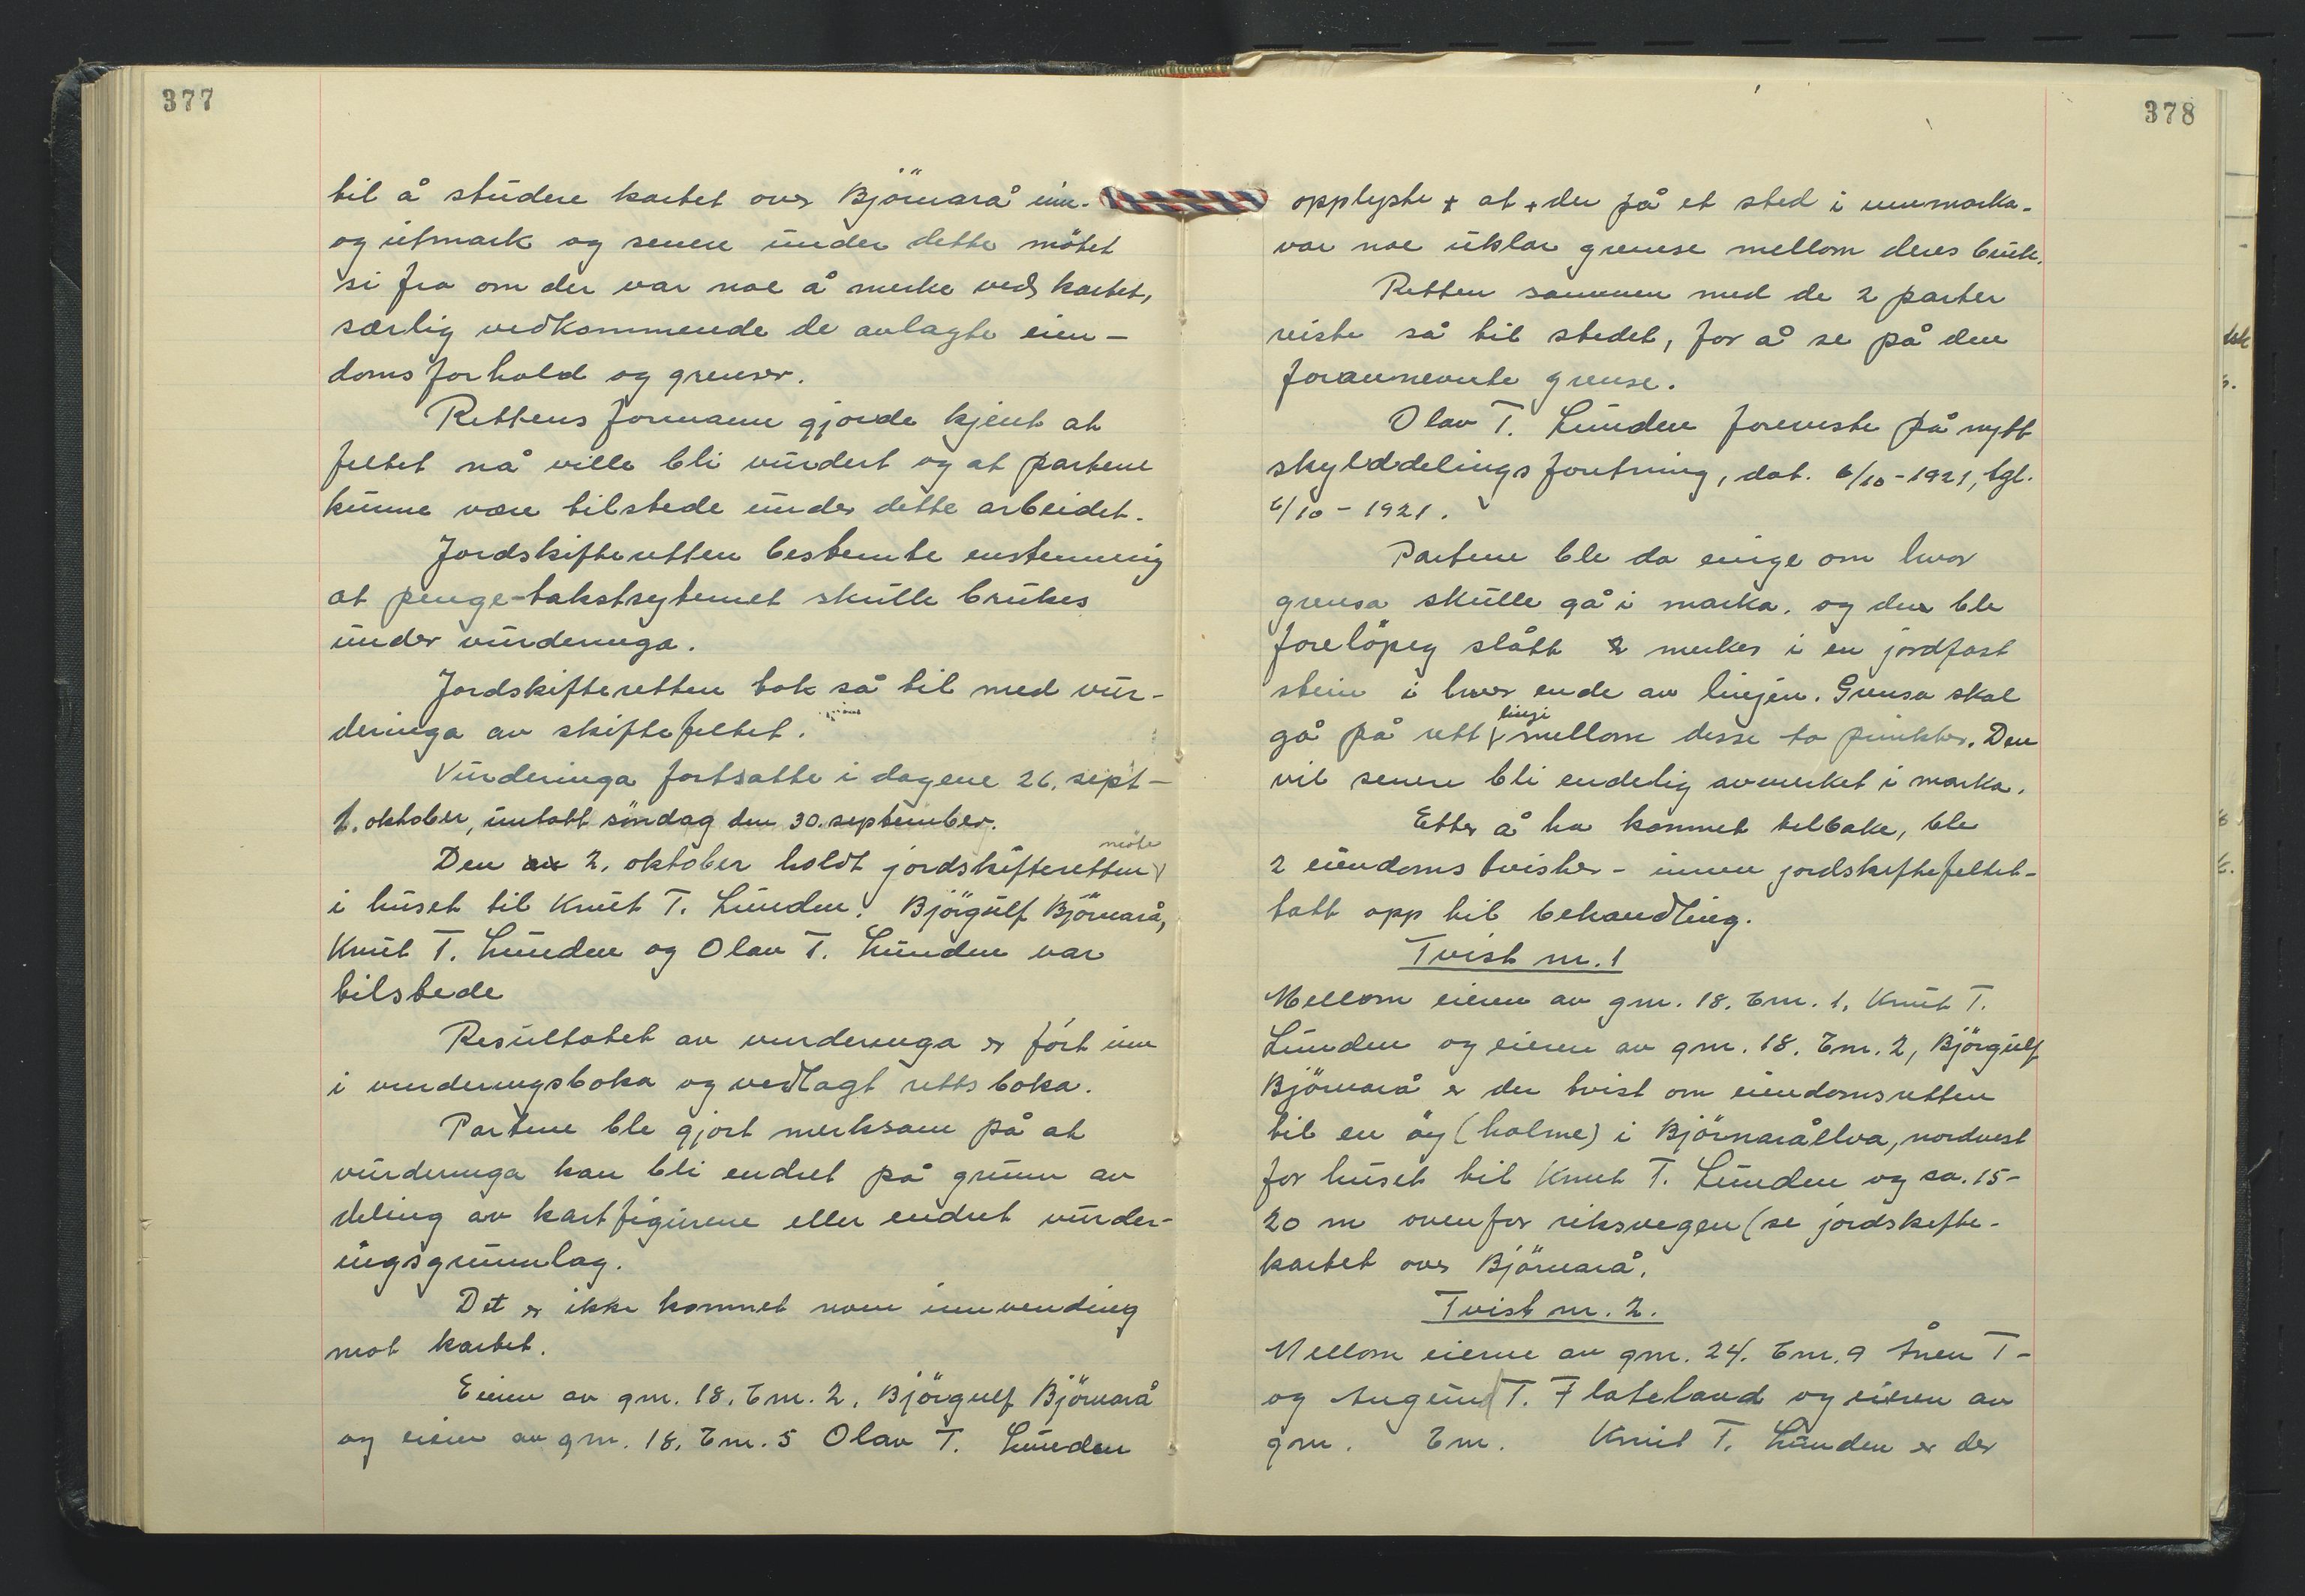 377
til å studere kartet over Björnarå inn-
og utmark og senere under dette mötet
si fra om der var noe å merke ved kartet,
særlig vedkommende de avlagte eien-
doms forhold og grenser.
Rettens formann gjorde kjent at
feltet nå ville bli vurdert og at partene
kunne være tilstede under dette arbeidet.
Jordskifteretten bestemte enstemmig
at penge-takstsytemet skulle brukes
under vurderinga.
Jordskifteretten tok så til med vur-
deringa av skiftefeltet.
Vurderinga fortsatte i dagene 26. sept-
1. oktober, untatt söndag den 30. september.
Den 2. oktober holdt jordskifteretten møte
i huset til Knut T. Lunden. Björgulf Björnarå,
Knut T. Lunden og Olav T. Lunden var
tilstede
Resultatet av vurderinga er fört inn
i vurderingsboka og vedlagt rettsboka.
Partene ble gjort merksam på at
vurderinga kan bli endret på grunn av
deling av kartfigurene eller endret vurder-
ingsgrunnlag.
Det er ikke kommet noen innvending
mot kartet.
Eieren av gnr. 18. bnr. 2. Björgulf Björnarå
og eieren av gnr. 18. bnr. 5 Olav T. Lunden
378
opplyste at der på et sted i innmarka
var noe uklar grense mellom deres bruk.
Retten sammen med de 2 parter
reiste så til stedet, for å se på den
forannevnte grense.
Olav T. Lunden foreviste på nytt
skylddelings forretning, dat. 6/10-1921, tgl.
6/10-1921.
Partene ble da enige om hvor
grensa skulle gå i marka, og der ble
forelöpig slått 2 merker i en jordfast
stein i hver ende av linjen. Grensa skal
gå på rett linje mellom desse to punkter. Den
vil senere bli endelig avmerket i marka.
Etter å ha kommet tilbake, ble
2 eiendoms tvister - innen jordskiftefeltet -
tatt opp til behandling.
Tvist nr. 1
Mellom eieren av gnr. 18. bnr. 1. Knut T.
Lunden og eieren av gnr. 18. bnr. 2, Björgulf
Björnarå er der tvist om eiendomsretten
til en öy (holme) i Björnaråelva, nordvest
for huset til Knut T. Lunden og ca. 15-
20 m ovenfor riksvegen (se jordskifte-
kartet over Björnarå.
Tvist nr. 2.
Mellom eierne av gnr. 24. bnr. 9 Ånen T-
og Augund T. Flateland og eieren av
gnr. bnr. Knut T. Lunden er der